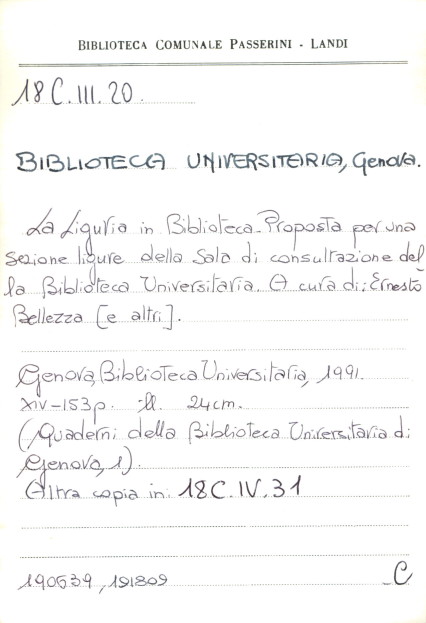 BIBLIOTECA COMUNALE PASSERINI - LANDI
18 C. III. 20
BIBLIOTECA UNIVERSITARIA, Genova.
La Liguria in Biblioteca. Proposta per una
sezione ligure della Sala di consultazione del
la Biblioteca Universitaria. A cura di: Ernesto
Bellezza [e altri].
Genova, Biblioteca Universitaria, 1991.
XIV-153 p. ill. 24 cm.
(Quaderni della Biblioteca Universitaria di
Genova, 1).
Altra copia in: 18 C. IV. 31
190639, 191809 C